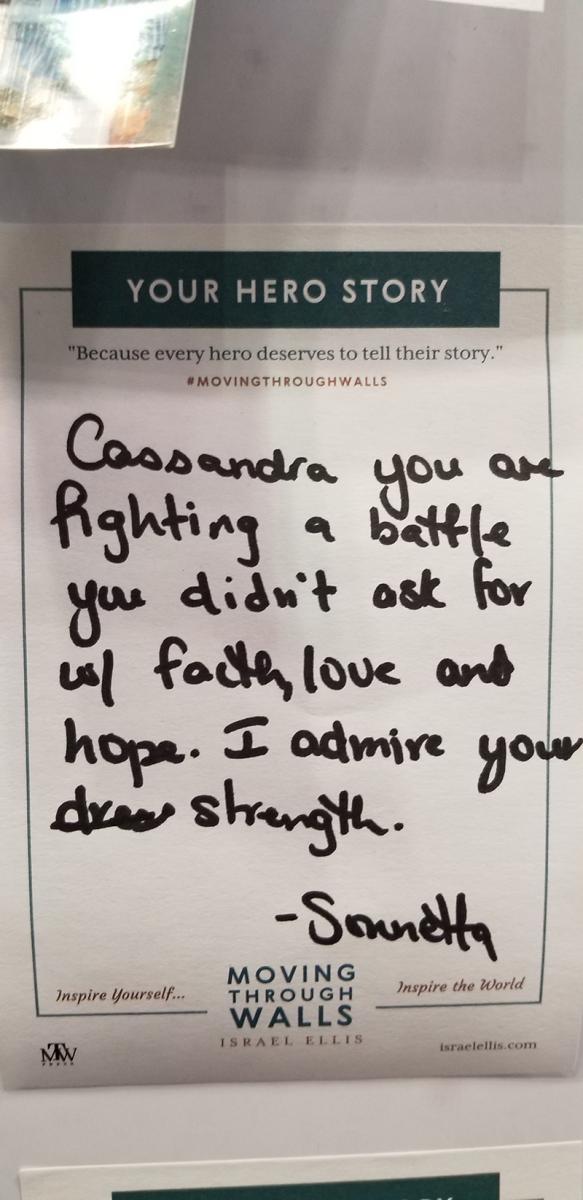 YOUR HERO STORY
"Because every hero deserves to tell their story."
#MOVINGTHROUGHWALLS
Cassandra you are
fighting a battle
you didn't ask for
w/ faith, love and
hope. I admire your
strength.
-Sonnetta
Inspire Yourself...
MOVING
THROUGH
WALLS
ISRAEL ELLIS
Inspire the World
MTW
PRESS
israelellis.com